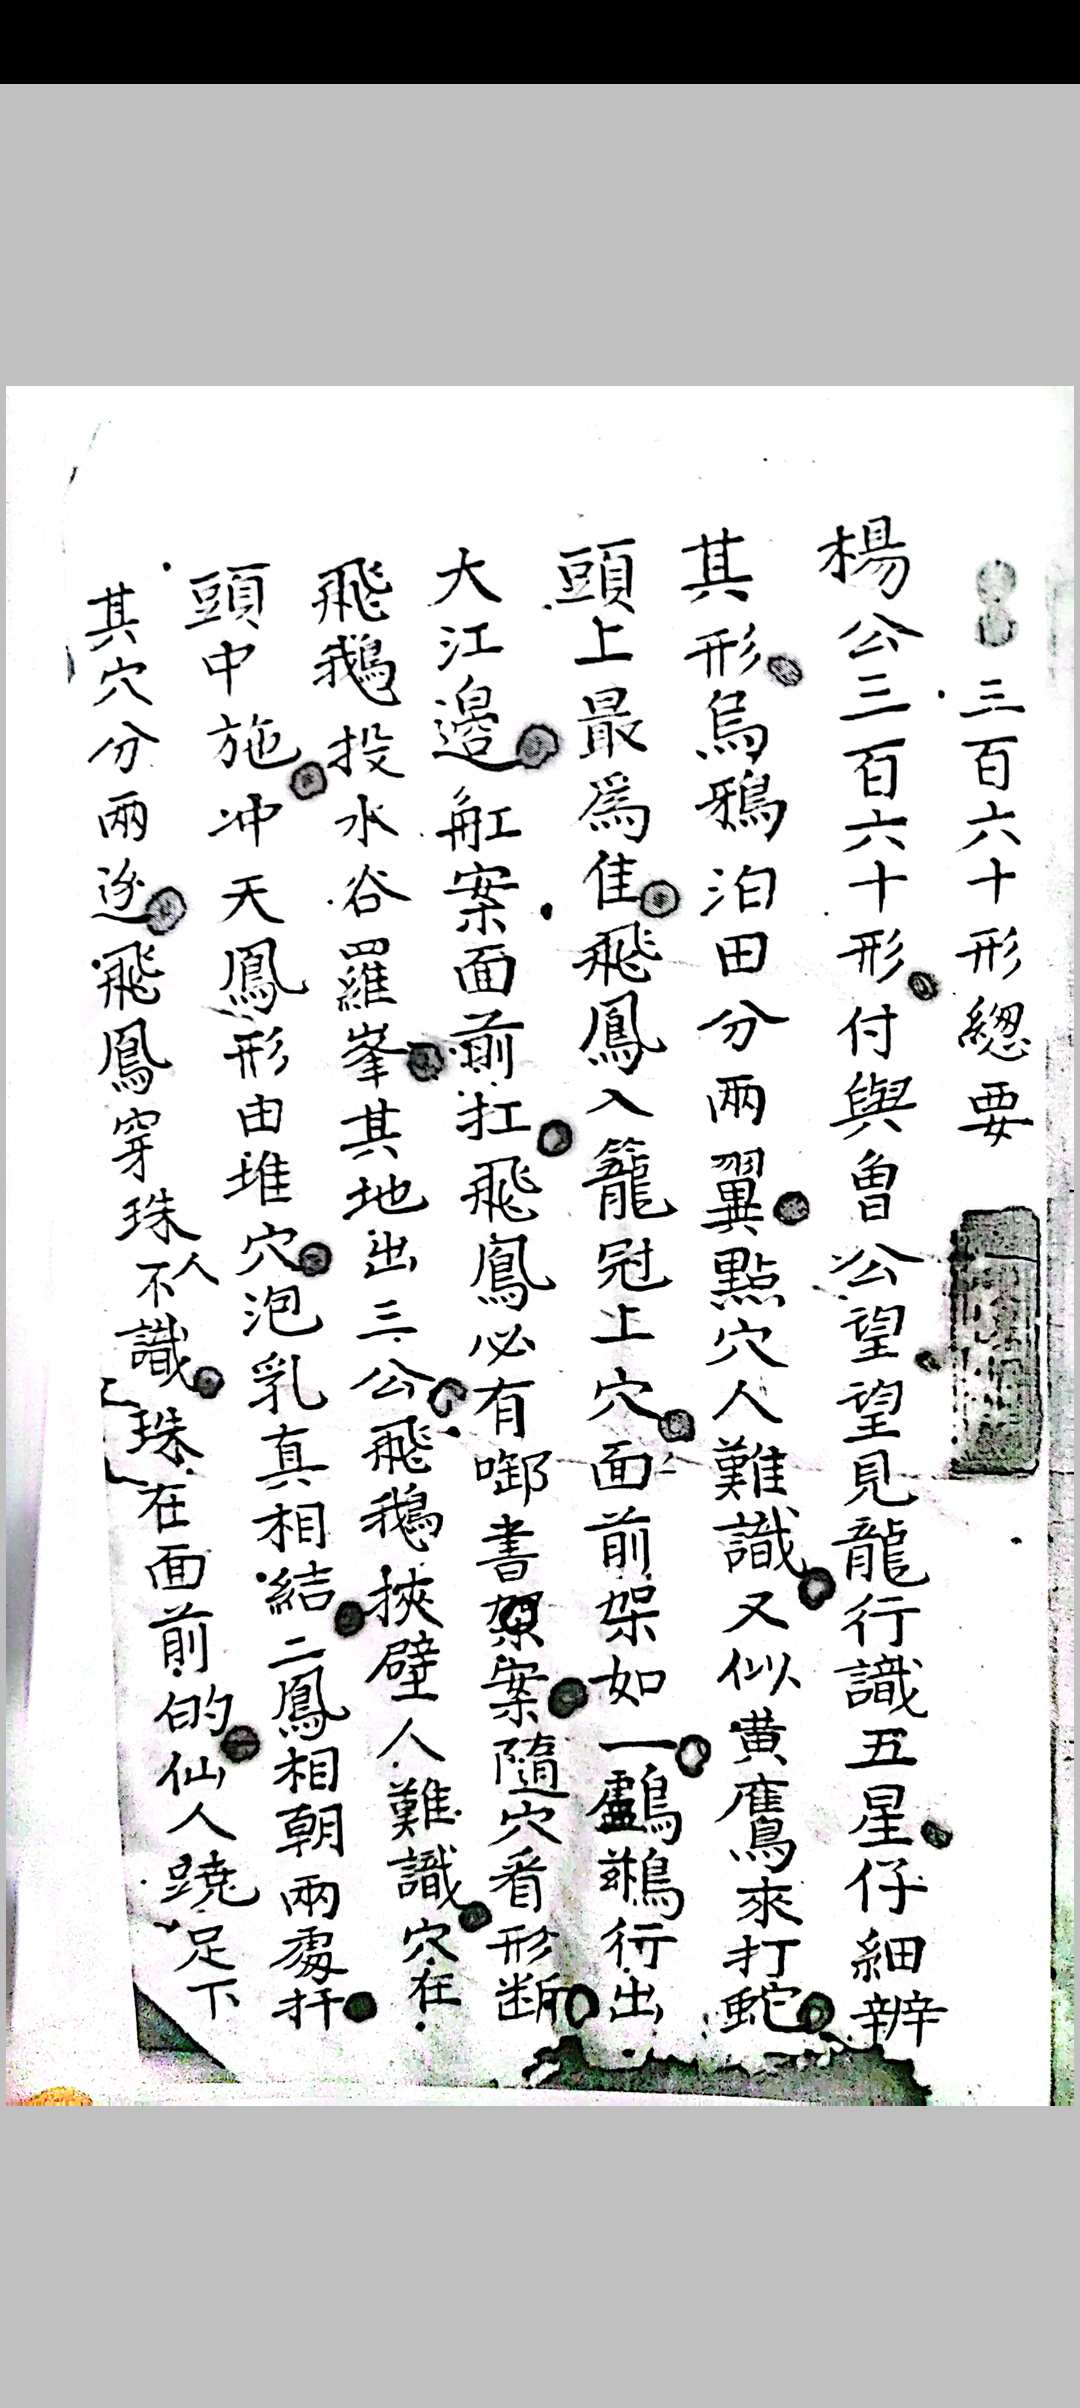 三百六十形緫要
楊公三百六十形付與曾公望望見龍行識五星仔細辨
其形烏鴉泊田分兩翼點穴人難識又似黄鷹來打蛇
頭上最為佳飛鳳入籠冠上穴面前架如一鸕鷀行出
大江邊舡案面前扛飛鳳必有啣書架案隨穴看形断
飛鵝投水谷羅峯其地出三公飛鵝挾壁人難識穴在
頭中施冲天鳳形由堆穴泡乳真相結二鳳相朝兩處扦
其穴分兩边飛鳳穿珠人不識珠在面前的仙人蹺足下